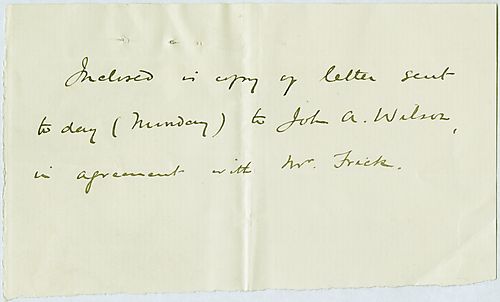 Inclosed is copy of letter sent
to day (Munday) to John A. Wilson,
in agreement with Mr. Frick.